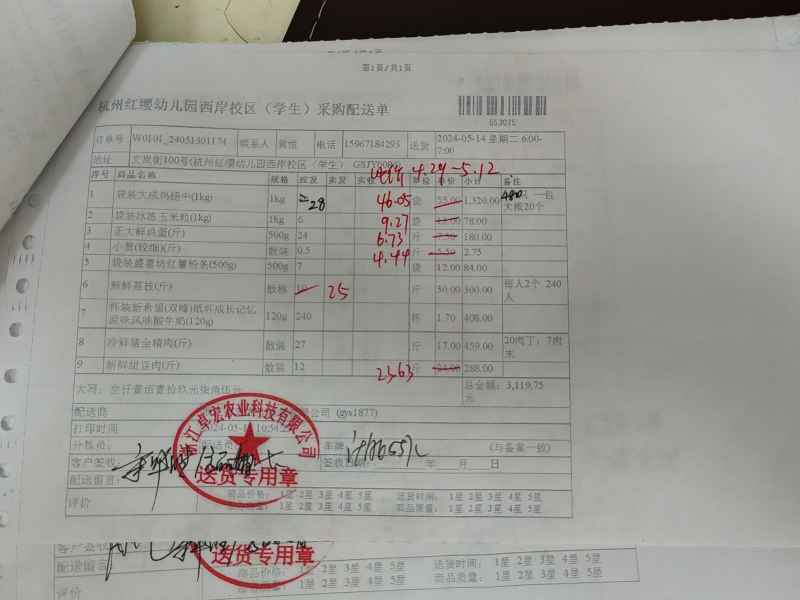 第1页/共1页
杭州红缨幼儿园西岸校区（学生）采购配送单
653075
订单号 W0101_24051301174 联系人 黄恒 电话 15967184293 送货 2024-05-14 星期二 6:00-7:00
地址 文岚街100号(杭州红缨幼儿园西岸校区（学生） GSJY0086)
4.29-5.12
序号 商品名称 规格 应发 实发 实收 单位 单价 小计 备注
1 袋装大成鸡翅中(1kg) 1kg 28 46.05 袋 55.00 1,320.00 480只 一包大概20个
2 袋装冰冻玉米粒(1kg) 1kg 6 9.27 袋 13.00 78.00
3 正大鲜鸡蛋(斤) 500g 24 6.73 斤 7.50 180.00
4 小葱(较细)(斤) 散装 0.5 4.44 斤 5.50 2.75
5 袋装盛喜坊红薯粉条(500g) 500g 7 袋 12.00 84.00
6 新鲜荔枝(斤) 散称 10 25 斤 30.00 300.00 每人2个 240人
7 杯装新希望(双峰)纸杯成长记忆原味风味酸牛奶(120g) 120g 240 杯 1.70 408.00
8 冷鲜猪全精肉(斤) 散装 27 斤 17.00 459.00 20肉丁；7肉末
9 新鲜甜豆肉(斤) 散装 12 23.63 斤 24.00 288.00
大写：叁仟壹佰壹拾玖元柒角伍分 总金额：3,119.75元
配送商 公司 (gys1877)
打印时间
分拣员： 配送员 车牌 (与备案一致)
客户签收： 签收日期： 年 月 日
配送留言：
浙江卓宏农业科技有限公司
送货专用章
评价 商品价格： 1星 2星 3星 4星 5星 送货时间： 1星 2星 3星 4星 5星
服务质量： 1星 2星 3星 4星 5星 商品质量： 1星 2星 3星 4星 5星
客户签收
配送留言
送货专用章
评价 商品价格： 1星 2星 3星 4星 5星 送货时间： 1星 2星 3星 4星 5星
服务质量： 1星 2星 3星 4星 5星 商品质量： 1星 2星 3星 4星 5星